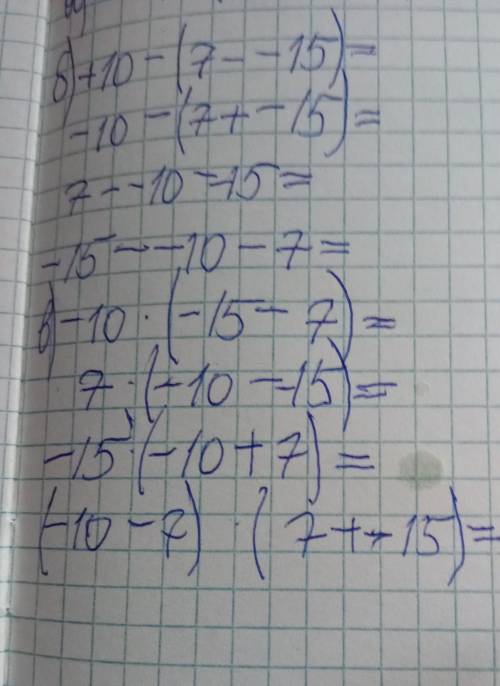 б) +10 - (7 - -15) =
-10 - (7 + -15) =
7 - -10 - -15 =
-15 - -10 - 7 =
в) -10 · (-15 - 7) =
7 · (-10 - -15) =
-15 · (-10 + 7) =
(-10 - 7) · (7 + -15) =